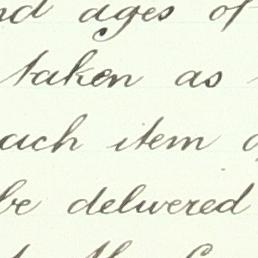 nd ages of
taken as
ach item o
be delivered